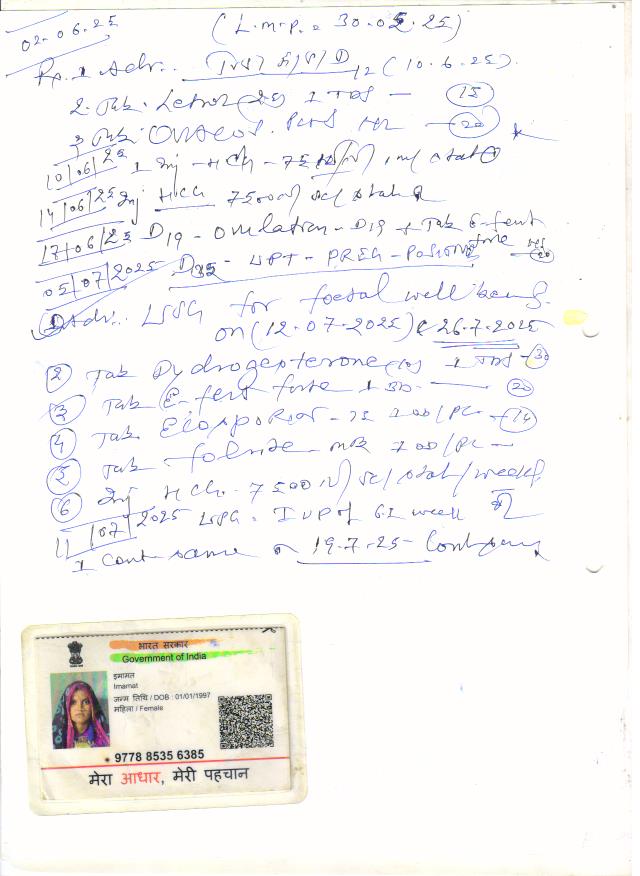 02.06.25
(L.m.p. = 30.05.25)
Rx. 1 Adv. D12 (10.6.25).
2. Tab. Letroz 1 TDS — 15
3 Tab. Plus — 20
10/06/25 1 Inj - HCG - 7500 IU i/m stat
14/06/25 Inj HCG 7500 IU s/c stat
17/06/25 D19 - Ovulation - D19 + Tab E-fert forte
05/07/2025 D35 - UPT - PREG - Positive 20
1 Adv.. USG for foetal well being
on (12.07.2025) & 26.7.2025
2 Tab Dydrogesterone (10) 1 TDS - 30
3 Tab E-fert forte 1 BD. — 20
4 Tab Ecosporin - 75 1 OD/PC — 14
5 Tab folnite 1 OD/PC —
6 Inj HCG. 7500 IU s/c/stat/weekly
11/07/2025 USG. IUP of 6.1 week
1 Cont same on 19.7.25
भारत सरकार
Government of India
इमामत
Imamat
जन्म तिथि / DOB : 01/01/1997
महिला / Female
9778 8535 6385
मेरा आधार, मेरी पहचान